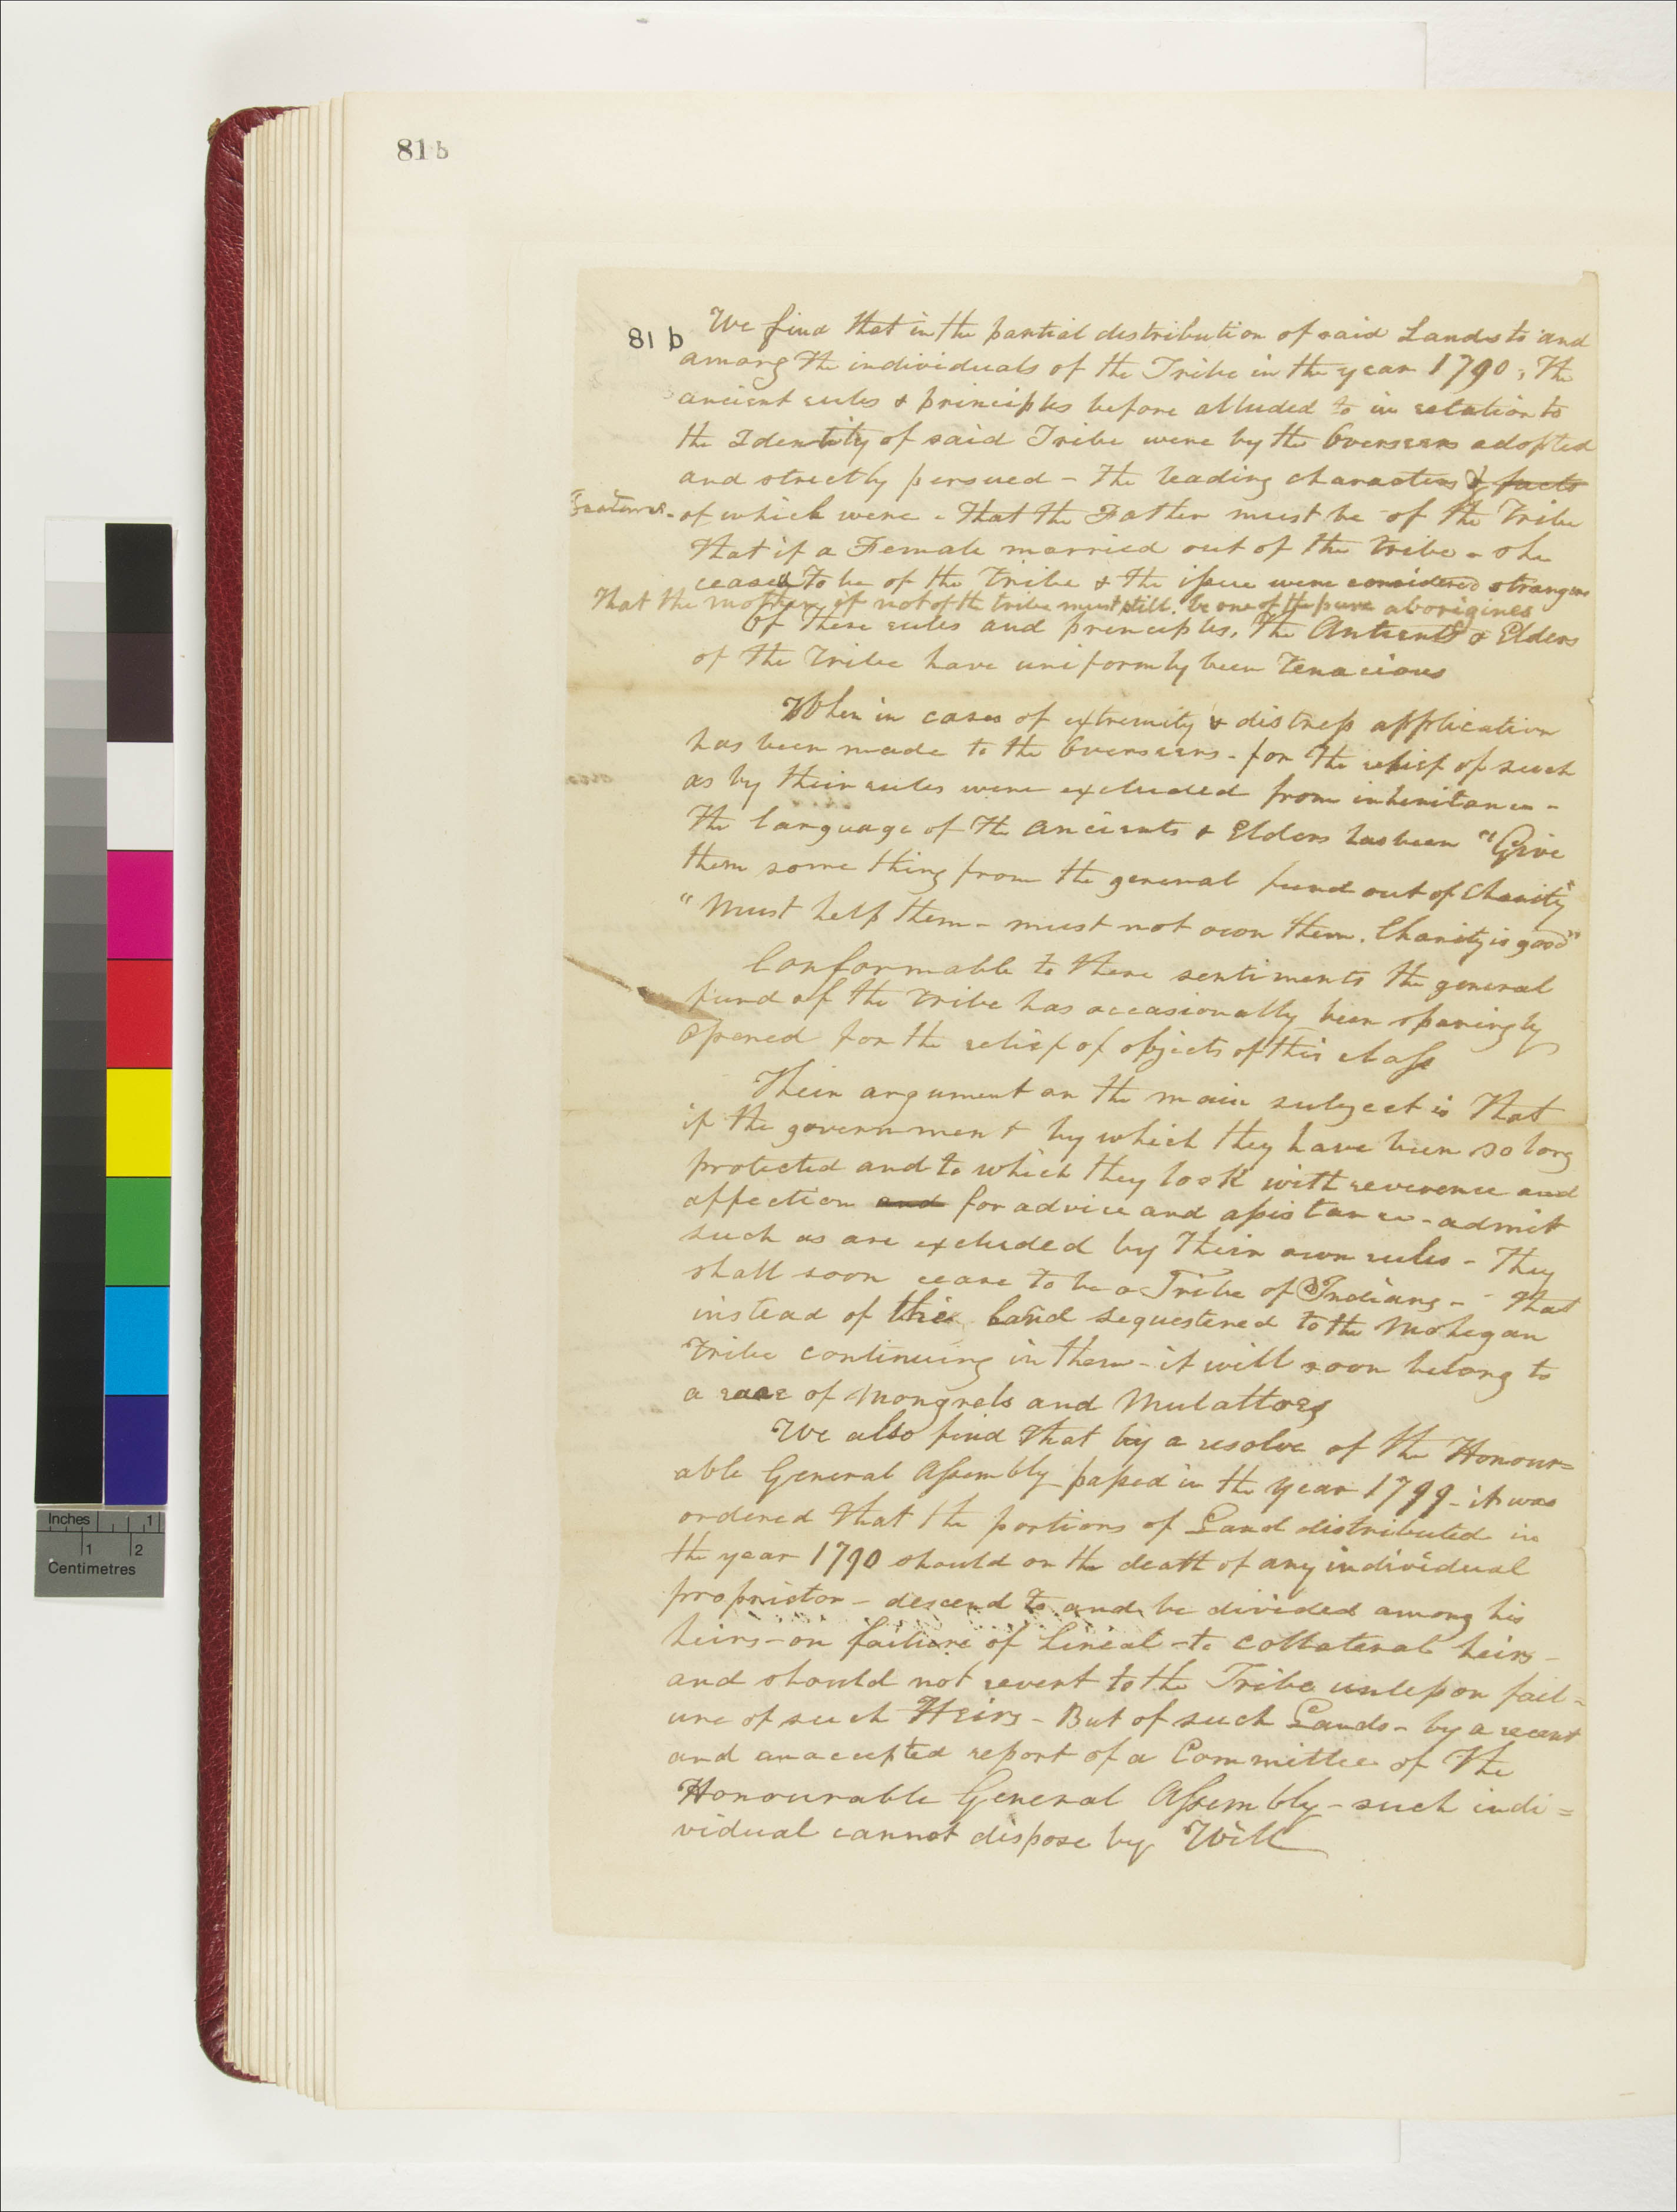 81 b
81 b
We find that in the partial distribution of said Lands to and
among the individuals of the Tribe in the year 1790, the
ancient rules & principles before alluded to in relation to
the Identity of said Tribe were by the Overseers adopted
and strectly persued - the leading characters & facts
Features - of which were - that the Father must be of the Tribe
that if a Female married out of the tribe - she
ceased to be of the tribe & the issue were considered strangers
That the mother if not of the tribe must still be one of the pure aborigines
Of these rules and principles, the Antients & Elders
of the Tribe have uniformly been tenacious
When in cases of extremity & distress application
has been made to the Overseers - for the relief of such
as by their rules were excluded from inheritance -
the language of the ancients & Elders has been "Give
them some thing from the general fund out of Charity"
"Must help them - must not own them. Charity is good"
Conformable to these sentiments the general
fund of the tribe has occasionally been sparingly
opened for the relief of objects of this class
Their argument on the main subject is that
if the government by which they have been so long
protected and to which they look with reverence and
affection and for advice and assistance - admit
such as are excluded by their own rules - they
shall soon cease to be a Tribe of Indians - that
instead of the land sequestered to the Mohegan
tribe continuing in them - it will soon belong to
a race of Mongrels and Mulattoes
We also find that by a resolve of the Honour=
able General Assembly passed in the year 1799 - it was
ordered that the portions of Land distributed in
the year 1790 should on the death of any individual
proprietor - descend to and be divided among his
heirs - on failure of lineal - to collateral heirs -
and should not revert to the Tribe unless on fail=
ure of such Heirs - But of such Lands - by a recent
and unaccepted report of a Committee of the
Honourable General Assembly - such indi=
vidual cannot dispose by Will
Inches 1
1 2
Centimetres